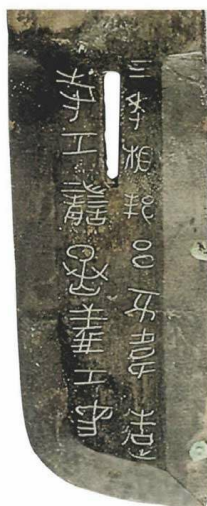 三年相邦呂不韋造
寺工讋丞義工窎